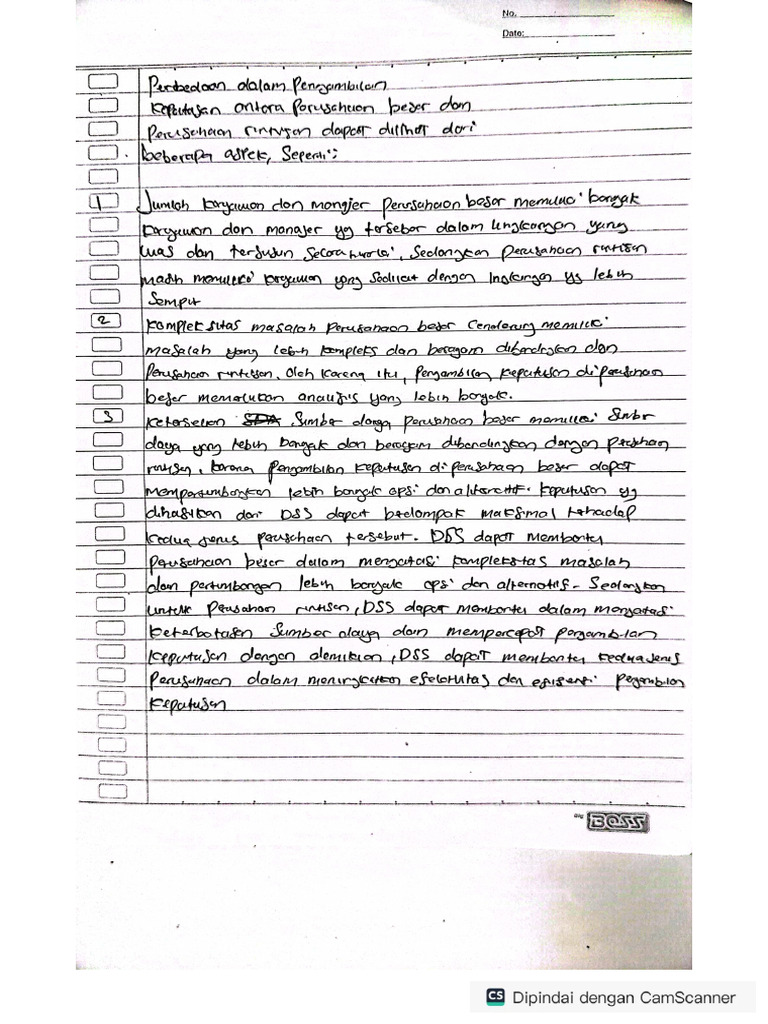 No.
Date:
Perbedaan dalam Pengambilan
Keputusan antara Perusahaan besar dan
Perusahaan rintisan dapat dilihat dari
beberapa aspek, Seperti:
1 Jumlah karyawan dan manajer perusahaan besar memiliki banyak
karyawan dan manajer yg tersebar dalam lingkungan yang
luas dan tersusun secara, Sedangkan perusahaan rintisan
masih memiliki karyawan yang Sedikit dengan lingkungan yg lebih
Sempit
2 Kompleksitas masalah perusahaan besar Cenderung memiliki
masalah yang lebih kompleks dan beragam dibandingkan dgn
Perusahaan rintisan. Oleh karena itu, Pengambilan keputusan di perusahaan
besar memerlukan analisis yang lebih banyak.
3 Sumber daya perusahaan besar memiliki Sumber
daya yang lebih banyak dan beragam dibandingkan dengan
rintisan, karena Pengambilan keputusan di perusahaan besar dapat
mempertimbangkan lebih banyak opsi dan alternatif. Keputusan yg
dihasilkan dari DSS dapat berdampak maksimal terhadap
kedua jenis perusahaan tersebut. DSS dapat membantu
Perusahaan besar dalam mengatasi kompleksitas masalah
dan pertimbangan lebih banyak opsi dan alternatif. Sedangkan
untuk Perusahaan rintisan, DSS dapat membantu dalam mengatasi
Keterbatasan Sumber daya dan mempercepat pengambilan
Keputusan dengan demikian, DSS dapat membantu kedua jenis
Perusahaan dalam meningkatkan efektivitas dan efisiensi pengambilan
Keputusan
BOSS
CS Dipindai dengan CamScanner